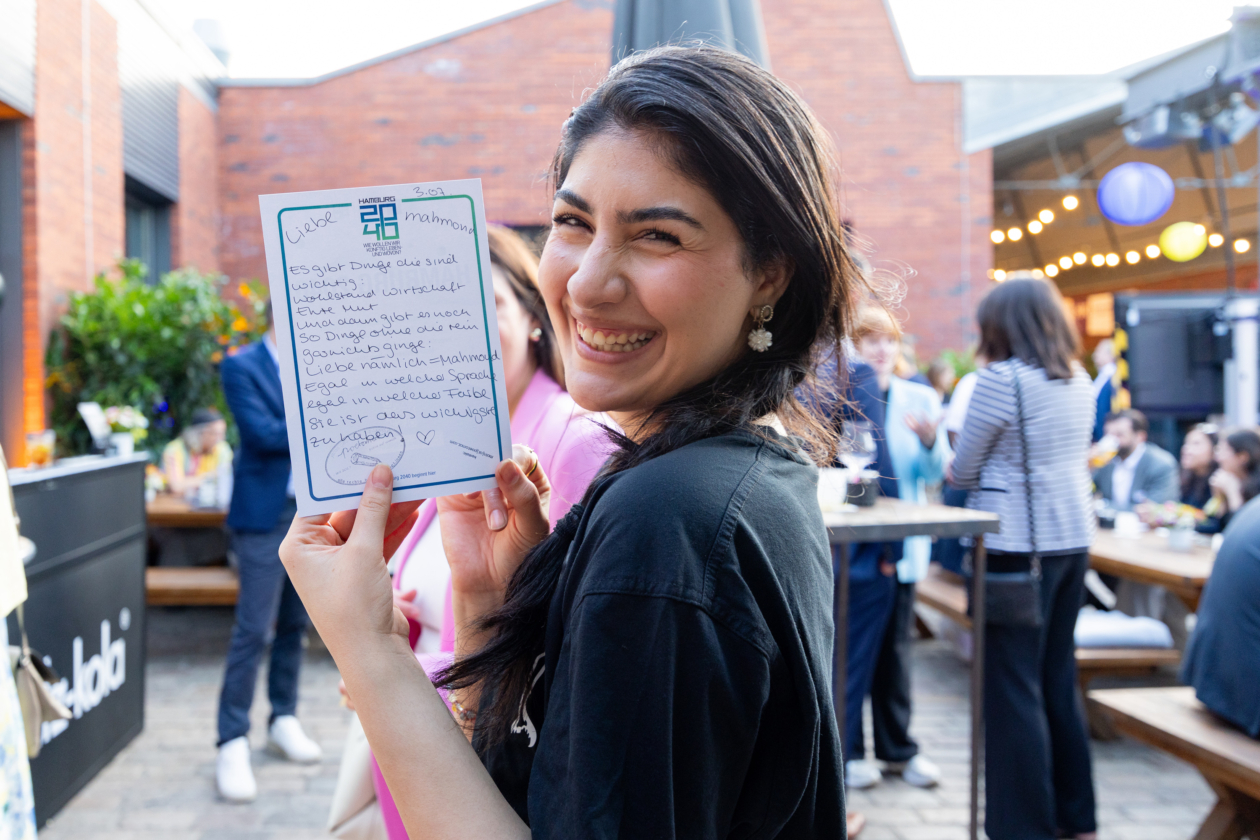 3.07
HAMBURG
2040
WIE WOLLEN WIR
KÜNFTIG LEBEN
UND WOVON?
Liebe mahmond
Es gibt Dinge die sind
wichtig:
wohlstand wirtschaft
Ehre Mut
und dann gibt es noch
So Dinge ohne die rein
garnichts ginge:
Liebe nämlich = Mahmoud
Egal in welche Sprache
egal in welche Farbe
sie ist das wichtigste
zu haben!
2040 beginnt hier
-kola